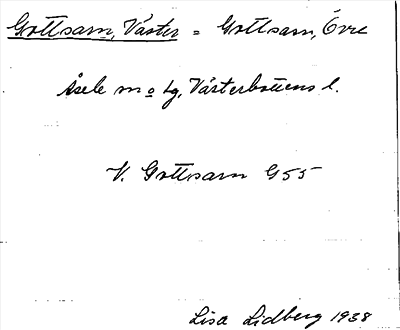 Gottsarn, Väster = Gottsarn, Övre
Åsele m o lg, Västerbottens l.
V. Gottsarn G55
Lisa Lidberg 1938